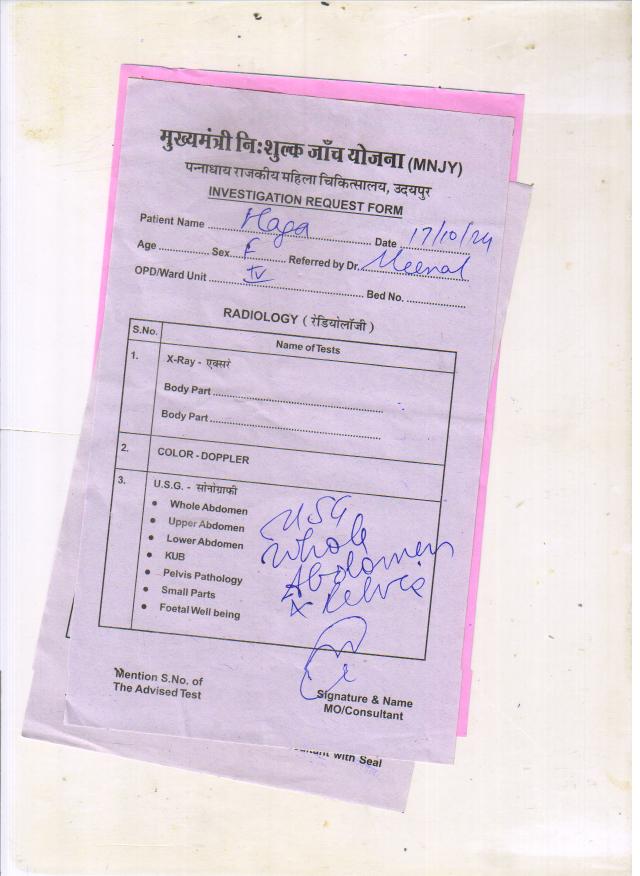 मुख्यमंत्री निःशुल्क जाँच योजना (MNJY)
पन्नाधाय राजकीय महिला चिकित्सालय, उदयपुर
INVESTIGATION REQUEST FORM
Patient Name ........ Date 17/10/24
Age ........ Sex F Referred by Dr. Meenal
OPD/Ward Unit IV Bed No. ........
RADIOLOGY ( रेडियोलॉजी )
S.No. Name of Tests
1. X-Ray - एक्सरे
Body Part ........
Body Part ........
2. COLOR - DOPPLER
3. U.S.G. - सोनोग्राफी
• Whole Abdomen
• Upper Abdomen
• Lower Abdomen
• KUB
• Pelvis Pathology
• Small Parts
• Foetal Well being
USG
Whole
Abdomen
& Pelvis
Mention S.No. of
The Advised Test
Signature & Name
MO/Consultant
with Seal